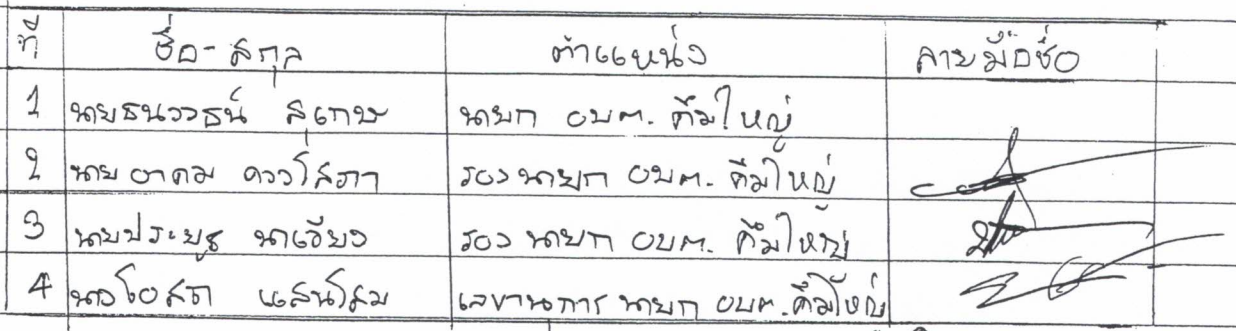 ที่ ชื่อ-สกุล ตำแหน่ง ลายมือชื่อ
1 นายธนวรรธน์ สุเกษ นายก อบต. คึมใหญ่
2 นายอาคม ดวงโสภา รองนายก อบต. คึมใหญ่
3 นายประยูร นาเวียง รองนายก อบต. คึมใหญ่
4 นายโอสถ แสนโสม เลขานุการ นายก อบต. คึมใหญ่